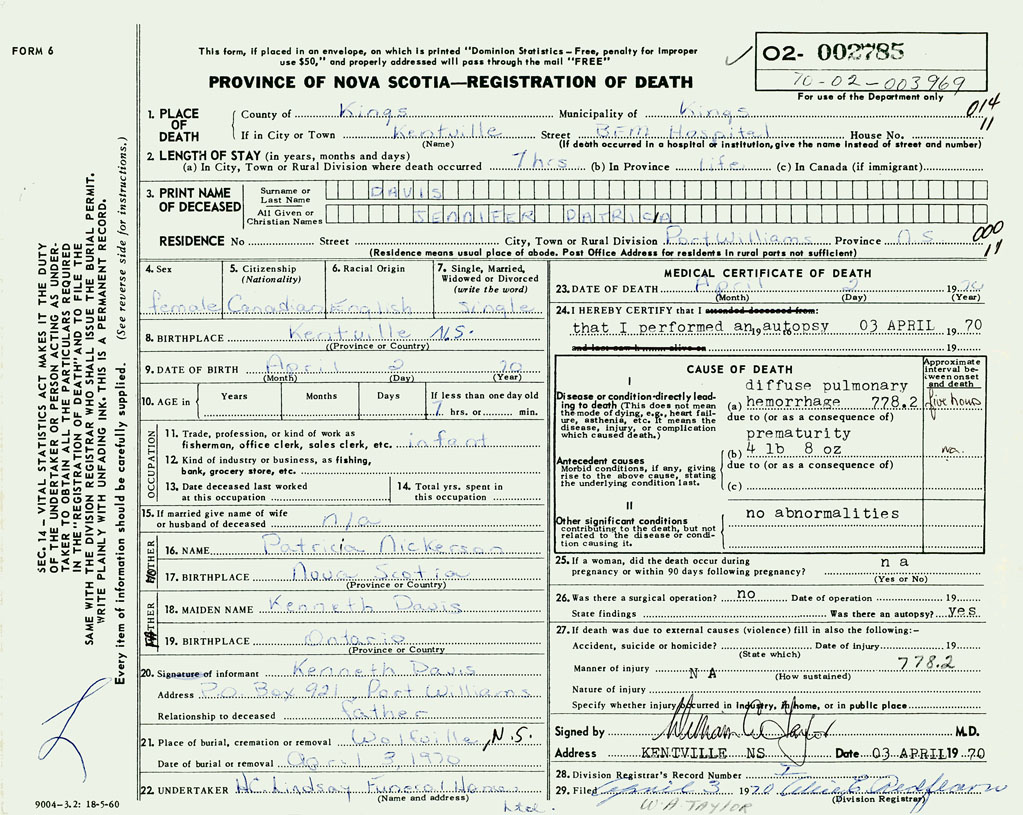 FORM 6
This form, if placed in an envelope, on which is printed "Dominion Statistics – Free, penalty for improper
use $50," and properly addressed will pass through the mail "FREE"
PROVINCE OF NOVA SCOTIA—REGISTRATION OF DEATH
02- 002785
70-02-003969
For use of the Department only
014
11
SEC. 14 – VITAL STATISTICS ACT MAKES IT THE DUTY
OF THE UNDERTAKER OR PERSON ACTING AS UNDER-
TAKER TO OBTAIN ALL THE PARTICULARS REQUIRED
IN THE "REGISTRATION OF DEATH" AND TO FILE THE
SAME WITH THE DIVISION REGISTRAR WHO SHALL ISSUE THE BURIAL PERMIT.
WRITE PLAINLY WITH UNFADING INK. THIS IS A PERMANENT RECORD.
Every item of information should be carefully supplied. (See reverse side for instructions.)
1. PLACE OF DEATH
County of Kings Municipality of Kings
If in City or Town Kentville Street BFM Hospital House No.
(Name) (If death occurred in a hospital or institution, give the name instead of street and number)
2. LENGTH OF STAY (in years, months and days)
(a) In City, Town or Rural Division where death occurred 7 hrs (b) In Province life (c) In Canada (if immigrant)
3. PRINT NAME OF DECEASED
Surname or Last Name DAVIS
All Given or Christian Names JENNIFER PATRICIA
000
11
RESIDENCE No Street City, Town or Rural Division Port Williams Province N.S.
(Residence means usual place of abode. Post Office Address for residents in rural parts not sufficient)
4. Sex
female
5. Citizenship (Nationality)
Canadian
6. Racial Origin
English
7. Single, Married, Widowed or Divorced (write the word)
single
8. BIRTHPLACE Kentville N.S.
(Province or Country)
9. DATE OF BIRTH April 2 70
(Month) (Day) (Year)
10. AGE in Years Months Days If less than one day old
7 hrs. or min.
OCCUPATION
11. Trade, profession, or kind of work as
fisherman, office clerk, sales clerk, etc. infant
12. Kind of industry or business, as fishing,
bank, grocery store, etc.
13. Date deceased last worked
at this occupation
14. Total yrs. spent in
this occupation
15. If married give name of wife
or husband of deceased n/a
16. NAME Patricia Nickerson
17. BIRTHPLACE Nova Scotia
(Province or Country)
18. MAIDEN NAME Kenneth Davis
19. BIRTHPLACE Ontario
(Province or Country
20. Signature of informant Kenneth Davis
Address P.O. Box 921, Port Williams
Relationship to deceased father
21. Place of burial, cremation or removal Wolfville, N.S.
Date of burial or removal April 3 1970
22. UNDERTAKER HC Lindsay Funeral Home
(Name and address) Ltd.
9004–3.2: 18-5-60
MEDICAL CERTIFICATE OF DEATH
23. DATE OF DEATH April 2 1970
(Month) (Day) (Year)
24. I HEREBY CERTIFY that I attended deceased from:
that I performed an 19 autopsy to 03 APRIL 19 70
and last saw h alive on 19
CAUSE OF DEATH
Approximate interval between onset and death
I
Disease or condition directly leading to death (This does not mean the mode of dying, e.g., heart failure, asthenia, etc. It means the disease, injury, or complication which caused death.)
diffuse pulmonary
(a) hemorrhage 778.2 five hours
due to (or as a consequence of)
Antecedent causes
Morbid conditions, if any, giving rise to the above cause, stating the underlying condition last.
prematurity
(b) 4 lb 8 oz na.
due to (or as a consequence of)
(c)
II
Other significant conditions
contributing to the death, but not related to the disease or condition causing it.
no abnormalities
25. If a woman, did the death occur during
pregnancy or within 90 days following pregnancy? n a
(Yes or No)
26. Was there a surgical operation? no Date of operation 19
State findings Was there an autopsy? yes
27. If death was due to external causes (violence) fill in also the following:–
Accident, suicide or homicide? Date of Injury 19
(State which) 778.2
Manner of injury N A
(How sustained)
Nature of injury
Specify whether injury occurred in Industry, in home, or in public place
Signed by William A. Taylor M.D.
Address KENTVILLE NS Date 03 APRIL 19 70
28. Division Registrar's Record Number
29. Filed April 3 1970
(Division Registrar)
W A TAYLOR